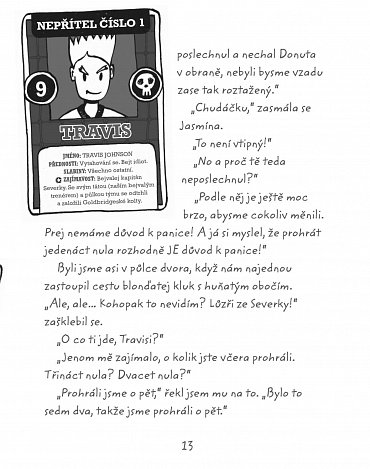 NEPŘÍTEL ČÍSLO 1
9
TRAVIS
JMÉNO: TRAVIS JOHNSON
PŘEDNOSTI: Vytahování se. Bejt idiot.
SLABINY: Všechno ostatní.
ZAJÍMAVOST: Bejvalej kapitán
Severky. Se svým tátou (naším bejvalým
trenérem) a půlkou týmu se odtrhli
a založili Goldbridgeské kolty.
poslechnul a nechal Donuta
v obraně, nebyli bysme vzadu
zase tak roztažený.“
„Chudáčku,“ zasmála se
Jasmína.
„To není vtipný!“
„No a proč tě teda
neposlechnul?“
„Podle něj je ještě moc
brzo, abysme cokoliv měnili.
Prej nemáme důvod k panice! A já si myslel, že prohrát
jedenáct nula rozhodně JE důvod k panice!“
Byli jsme asi v půlce dvora, když nám najednou
zastoupil cestu blonďatej kluk s huňatým obočím.
„Ale, ale... Kohopak to nevidím? Lůzři ze Severky!“
zašklebil se.
„O co ti jde, Travisi?“
„Jenom mě zajímalo, o kolik jste včera prohráli.
Třináct nula? Dvacet nula?“
„Prohráli jsme o pět,“ řekl jsem mu na to. „Bylo to
sedm dva, takže jsme prohráli o pět.“
13